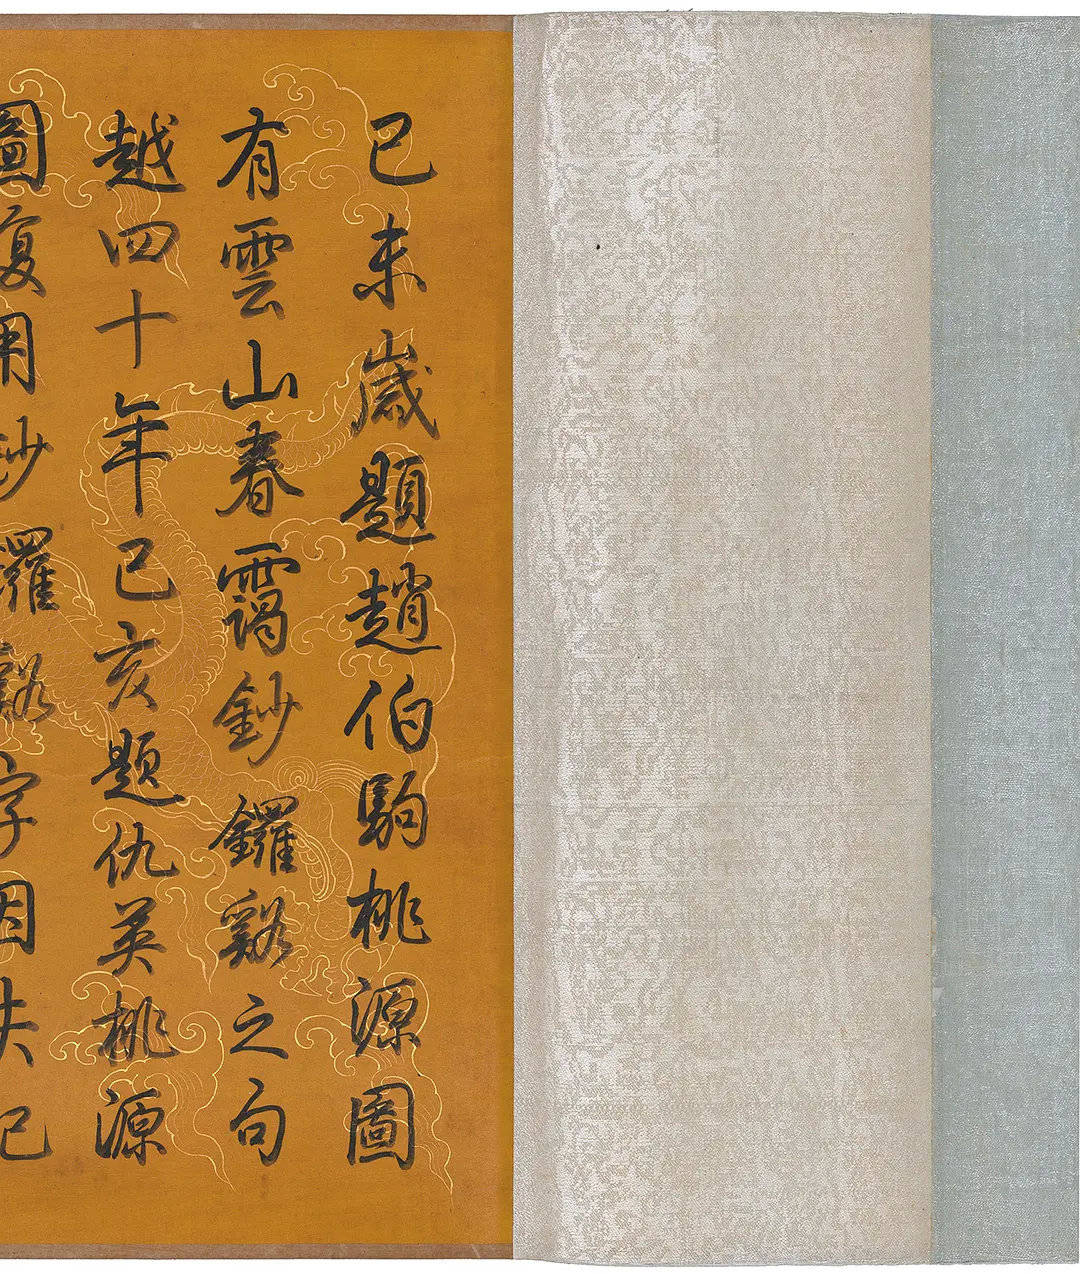 己未歲題趙伯駒桃源圖
有雲山春靄鈔鑼谿之句
越四十年己亥題仇英桃源
圖復用鈔鑼谿字因失記